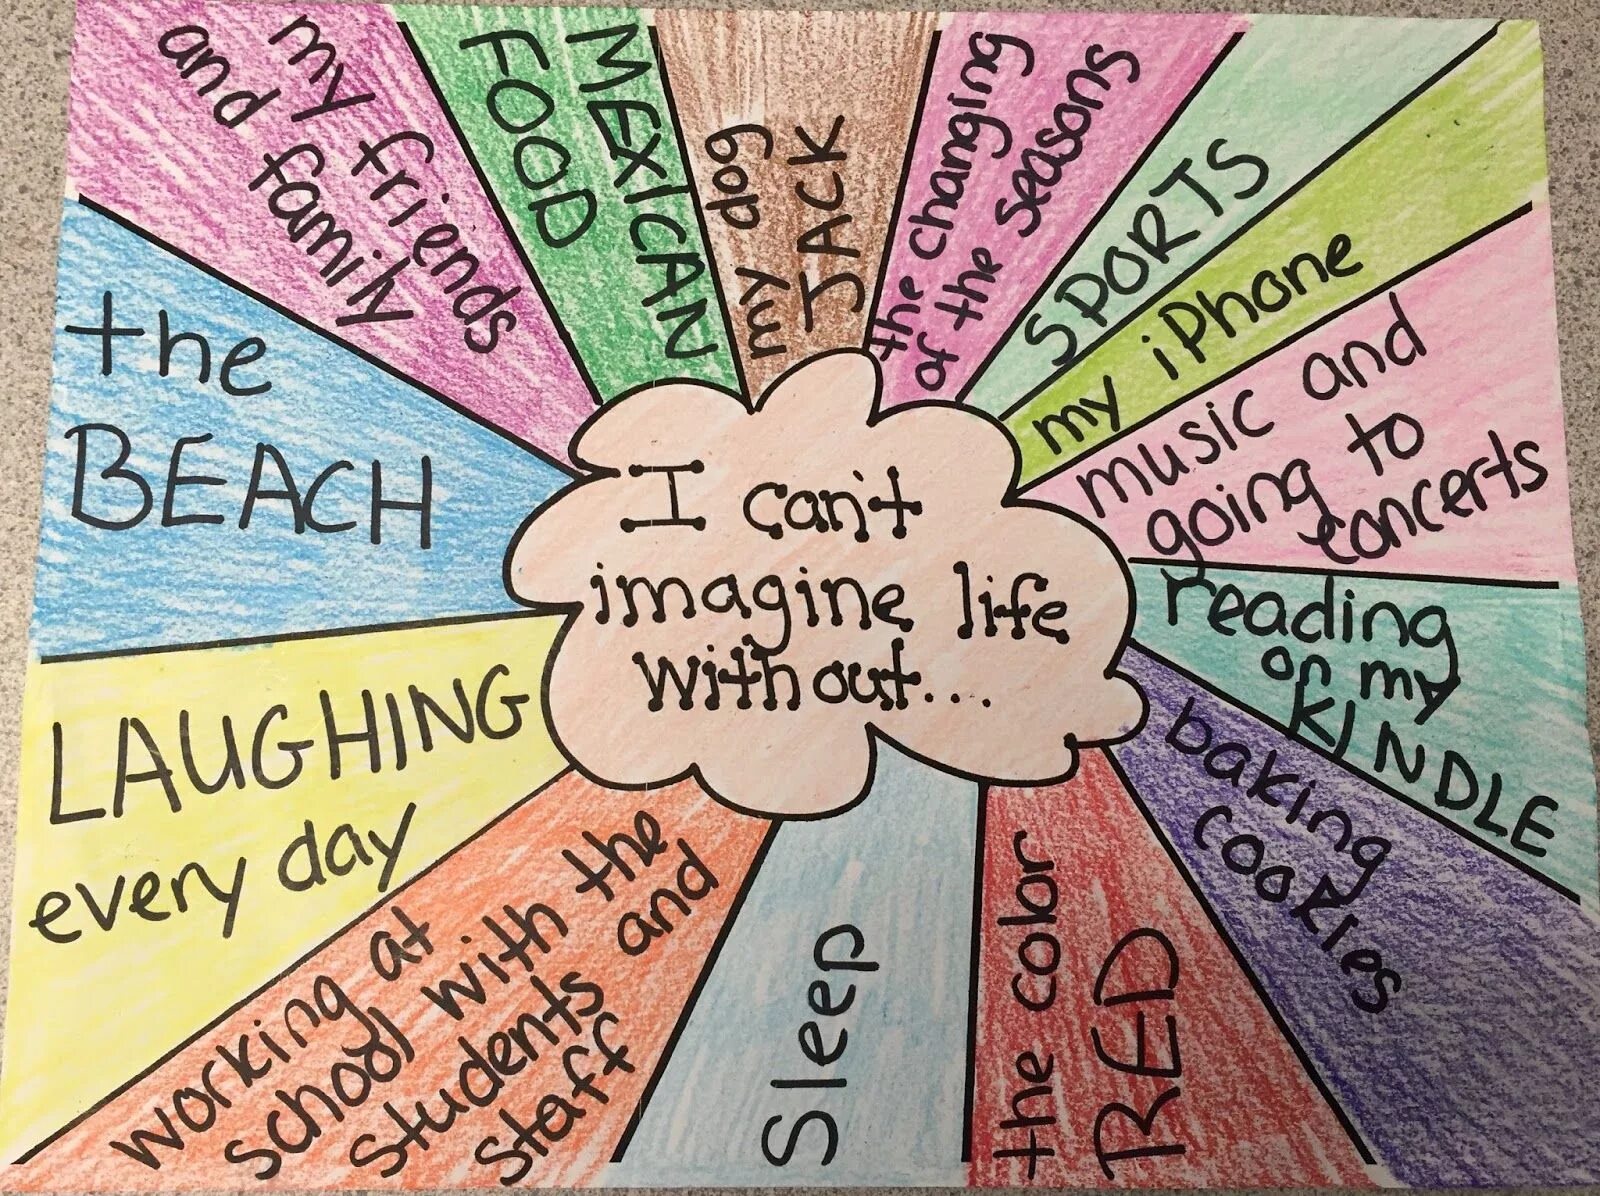 I can't
imagine life
without...
my friends
and family
MEXICAN
FOOD
my dog
JACK
the changing
of the seasons
SPORTS
my iPhone
music and
going to
concerts
reading
on my
KINDLE
baking
cookies
the color
RED
Sleep
working at
school with the
students and
staff
LAUGHING
every day
the
BEACH